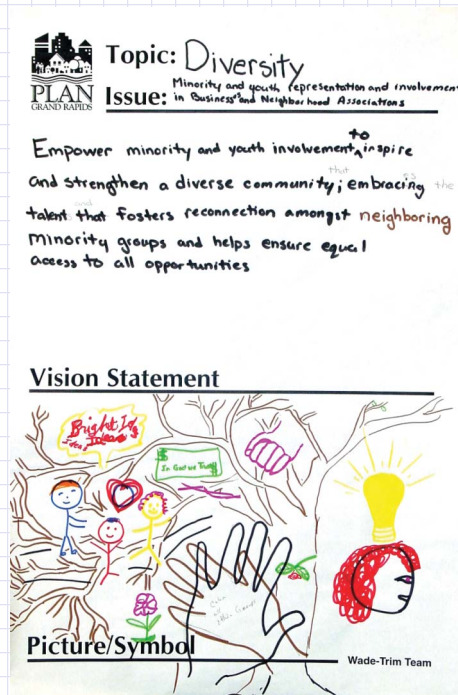 Topic: Diversity
PLAN
GRAND RAPIDS
Issue: Minority and youth representation and involvement
in Business and Neighborhood Associations
Empower minority and youth involvement to inspire
and strengthen a diverse community; that embracing the
talent and that fosters reconnection amongst neighboring
minority groups and helps ensure equal
access to all opportunities
Vision Statement
Bright
Ideas
$
In God we Trust
Picture/Symbol
Wade-Trim Team